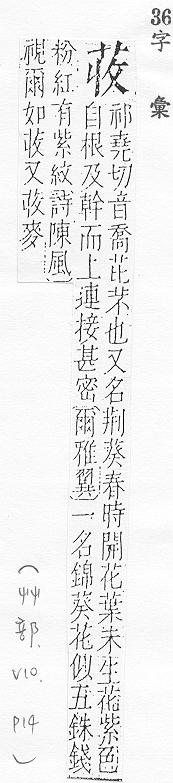 36字彙
荍
祁堯切音喬芘芣也又名荆葵春時開花葉未生花紫色
自根及幹而上連接甚密爾雅翼一名錦葵花似五銖錢
粉紅有紫紋詩陳風
視爾如荍又荍麥
(艸部. V10. P14)